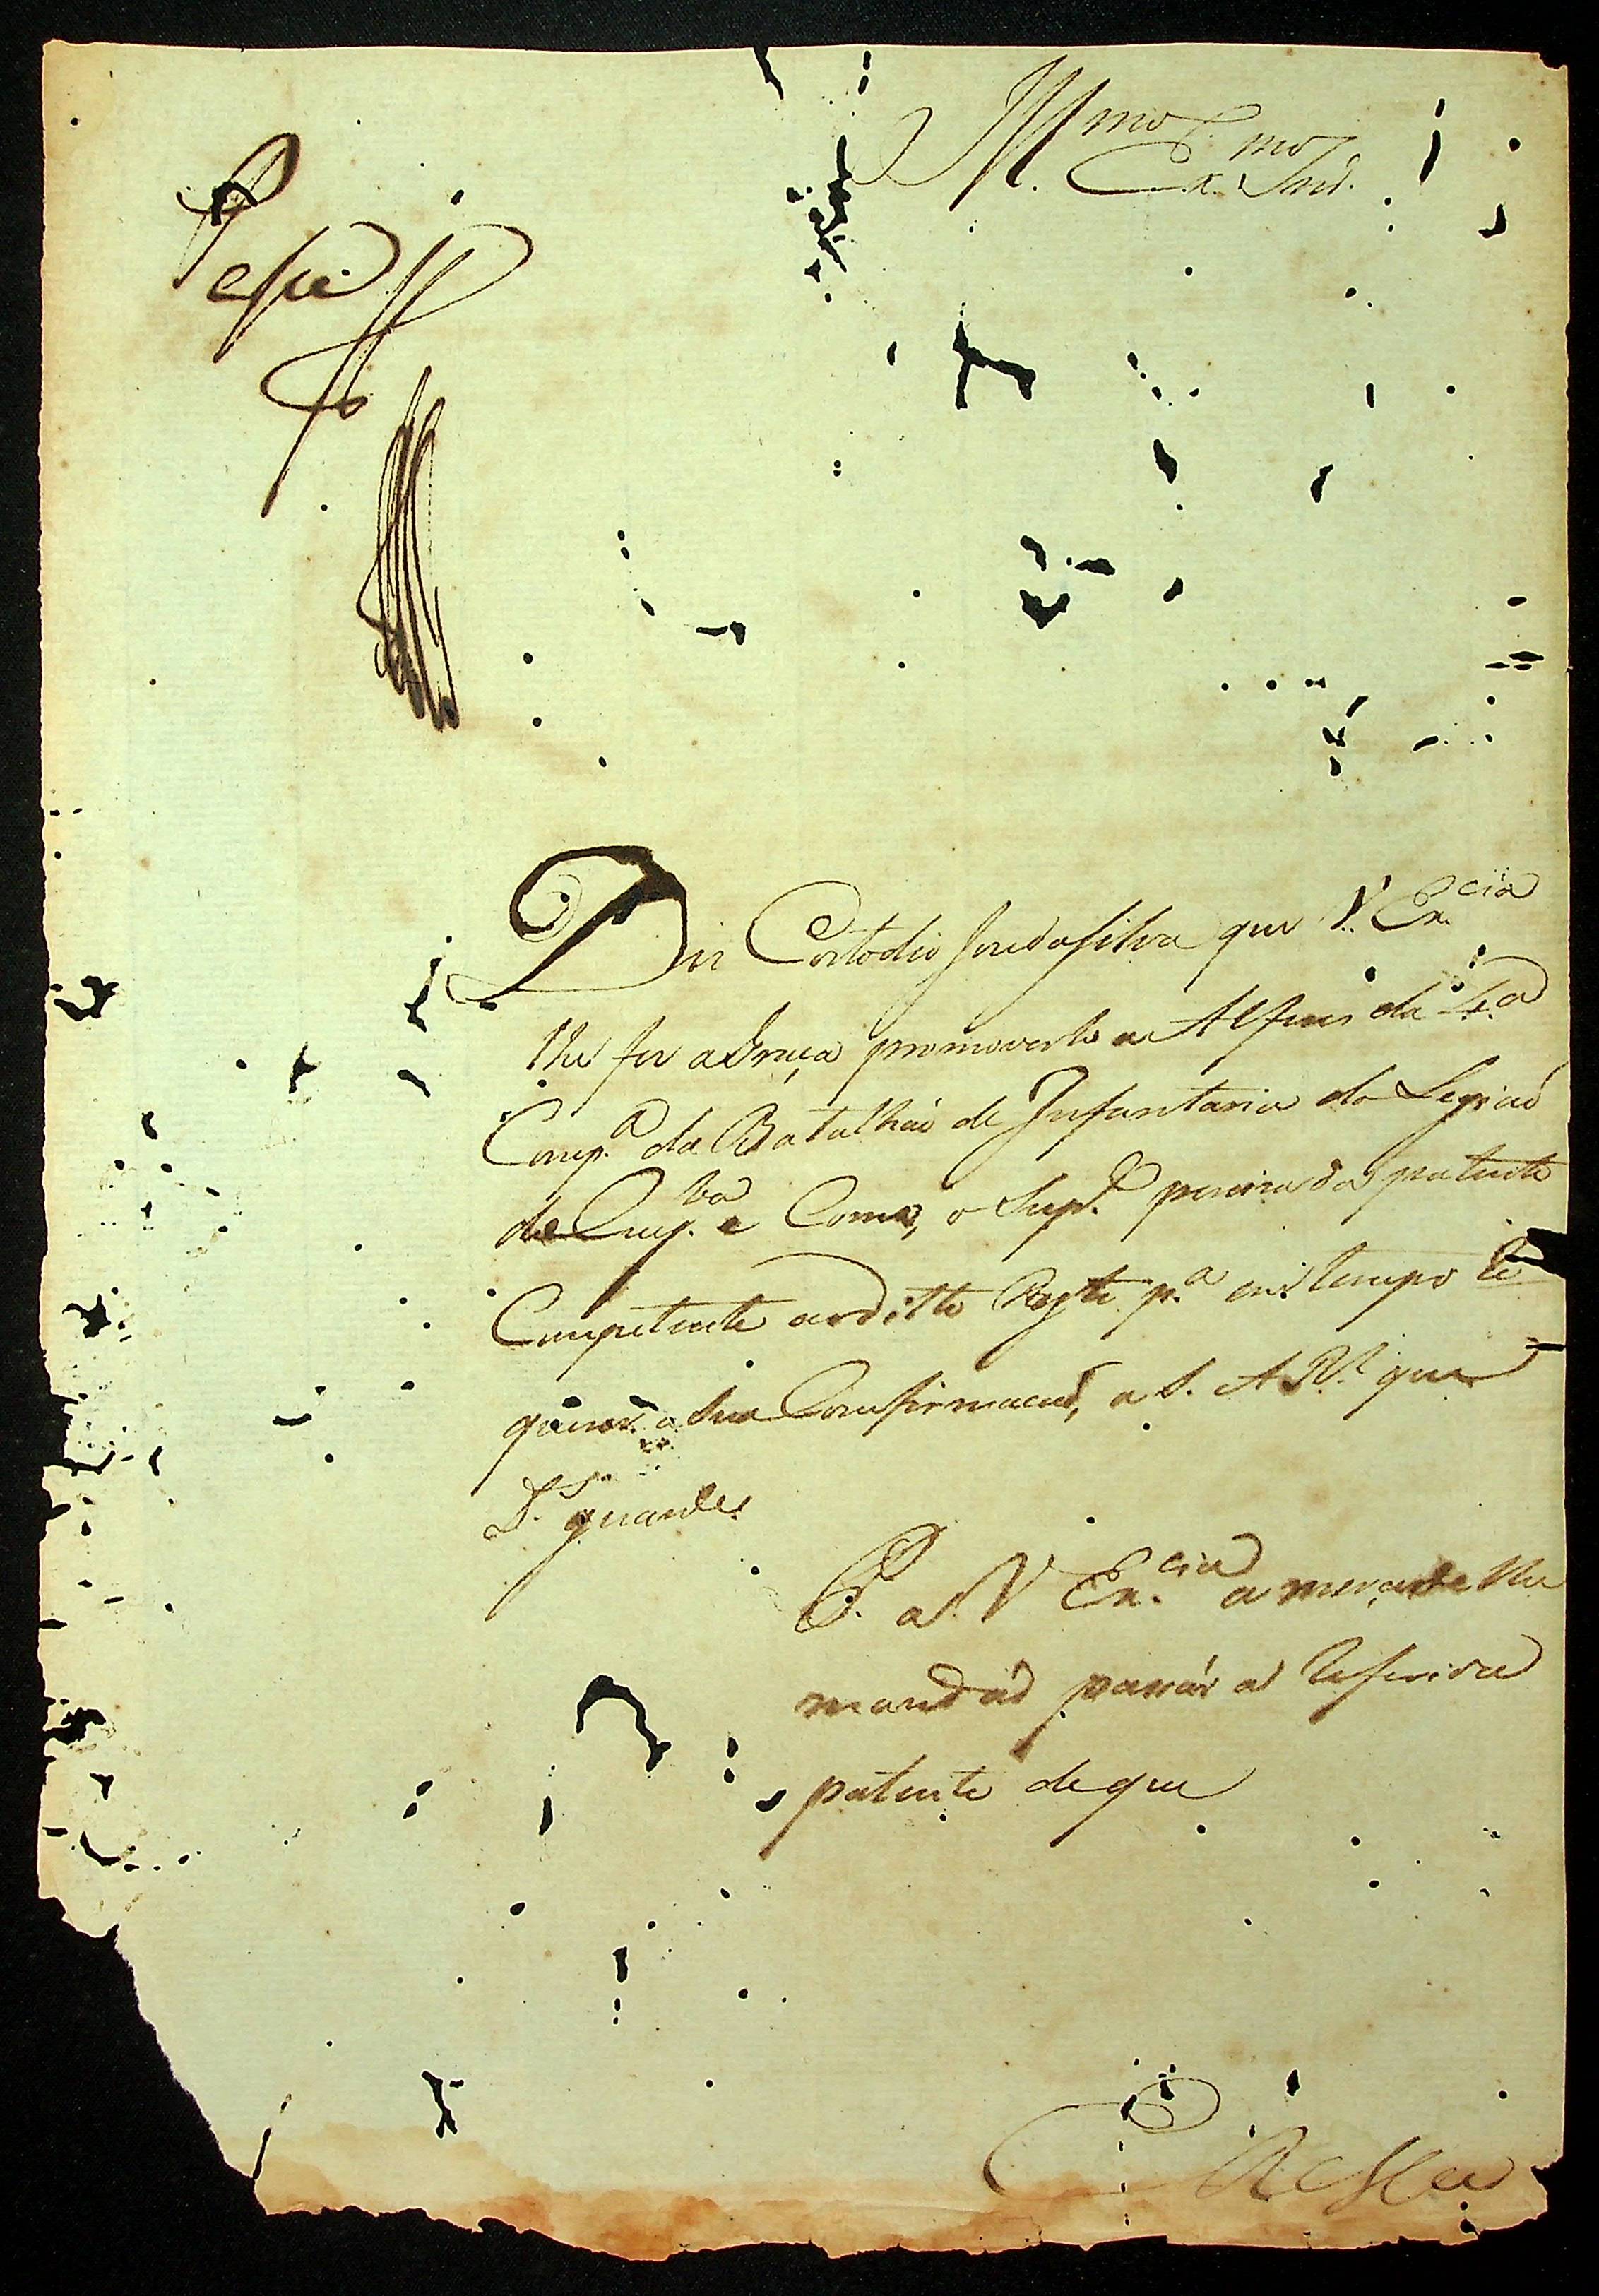 Ill.mo
Ex.mo Snr.
Passe
Diz Costodio Joze da Silva que V. Ex.cia
lhe fez a Graça promovelo a Alferes da 4.a
Comp.a do Batalhaõ de Infantaria da Legiaõ
de e Como, o Sup.e perciza da patente
Competente ao ditto p.a em tempo Re
querer a Sua Confirmacaõ, a S. A R.l que
D.s guarde.
P. a V Ex.cia a merçe de lhe
mandár passár a Referida
patente de que
E R Mce